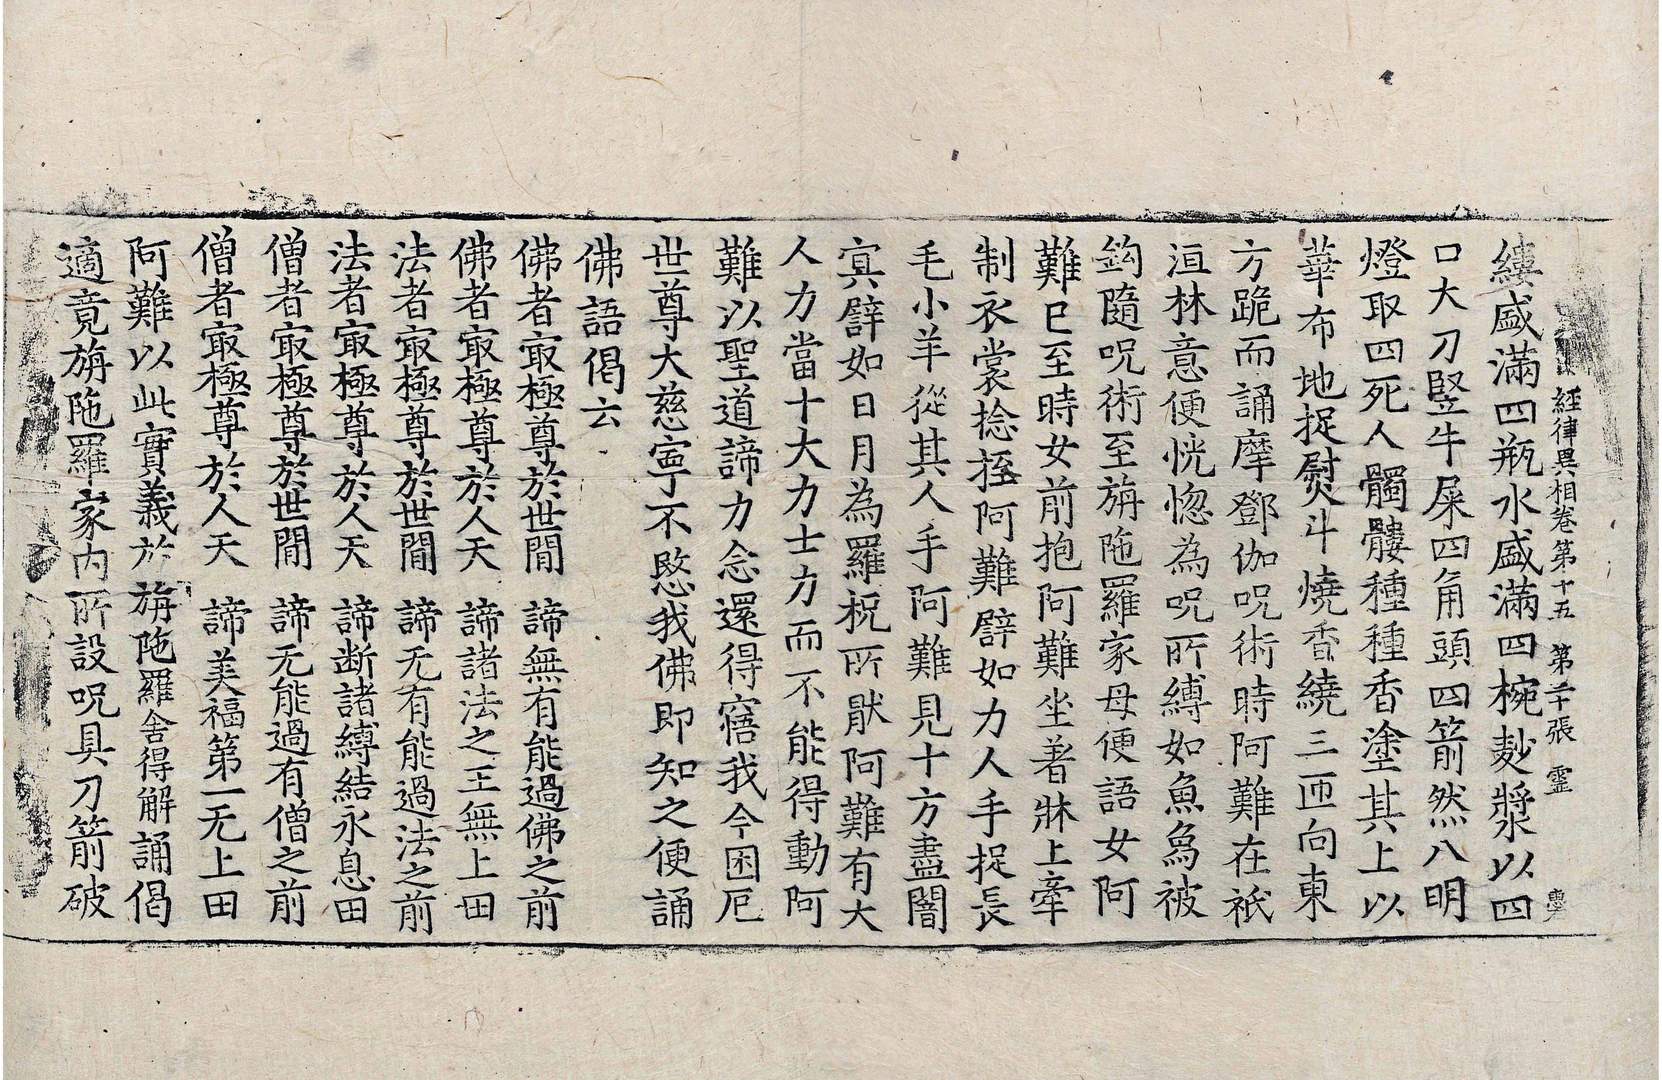 經律異相卷第十五 第二千張 靈
縷盛滿四瓶水盛滿四椀麨漿以四
口大刀竪牛屎四角頭四箭然八明
燈取四死人髑髏種種香塗其上以
華布地捉熨斗燒香繞三匝向東
方跪而誦摩鄧伽呪術時阿難在祇
洹林意便恍惚為呪所縛如魚為被
鈎隨呪術至旃陁羅家母便語女阿
難已至時女前抱阿難坐著牀上牽
制衣裳捻挃阿難譬如力人手捉長
毛小羊從其人手阿難見十方盡闇
冥譬如日月為羅柷所猒阿難有大
人力當十大力士力而不能得動阿
難以聖道諦力念還得寤我今困厄
世尊大慈寧不愍我佛即知之便誦
佛語偈云
佛者㝡極尊於世間 諦無有能過佛之前
佛者㝡極尊於人天 諦諸法之王無上田
法者㝡極尊於世間 諦无有能過法之前
法者㝡極尊於人天 諦断諸縛結永息田
僧者㝡極尊於世間 諦无能過有僧之前
僧者㝡極尊於人天 諦美福第一无上田
阿難以此實義於旃陁羅舍得解誦偈
適竟旃陁羅家内所設呪具刀箭破